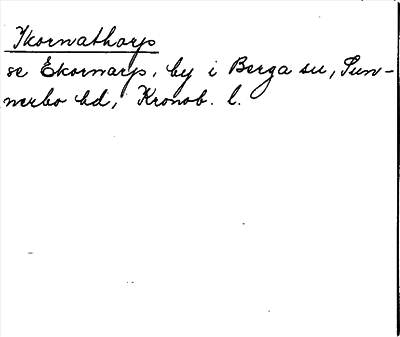 Ikornathorp
se Ekornarp, by i Berga sn, Sun-
nerbo hd, Kronob. l.